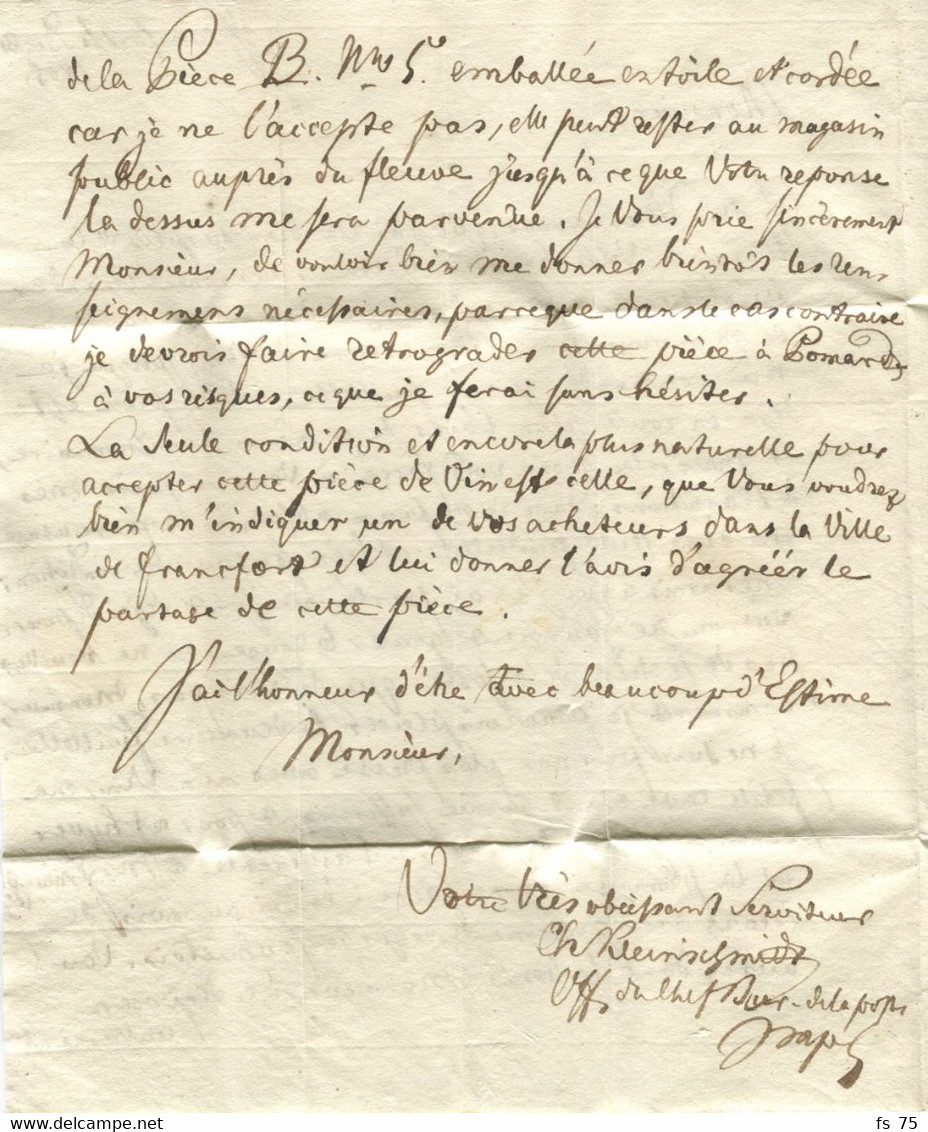 de la Pièce B. Nro 5. emballée en toile et cordée
car je ne l'accepte pas, elle peut rester au magasin
public auprès du fleuve jusqu'à ce que Votre reponse
la dessus me sera parvenue. Je Vous prie sincèrement
Monsieur, de vouloir bien me donner bientôt les ren
seignemens nécessaires, parceque dans le cas contraire
je devrois faire retrograder cette pièce à Pomard
à vos risques, ce que je ferai sans hésiter.
La seule condition et encore la plus naturelle pour
accepter cette pièce de Vin est celle, que Vous voudrez
bien m'indiquer un de Vos acheteurs dans la Ville
de francfort et lui donner l'avis d'agréer le
partage de cette pièce.
J'ai l'honneur d'être avec beaucoup d'Estime
Monsieur,
Votre très obéissant Serviteur
Ch Kleinschmidt
Off. du Chef Bur. de la poste
fs 75